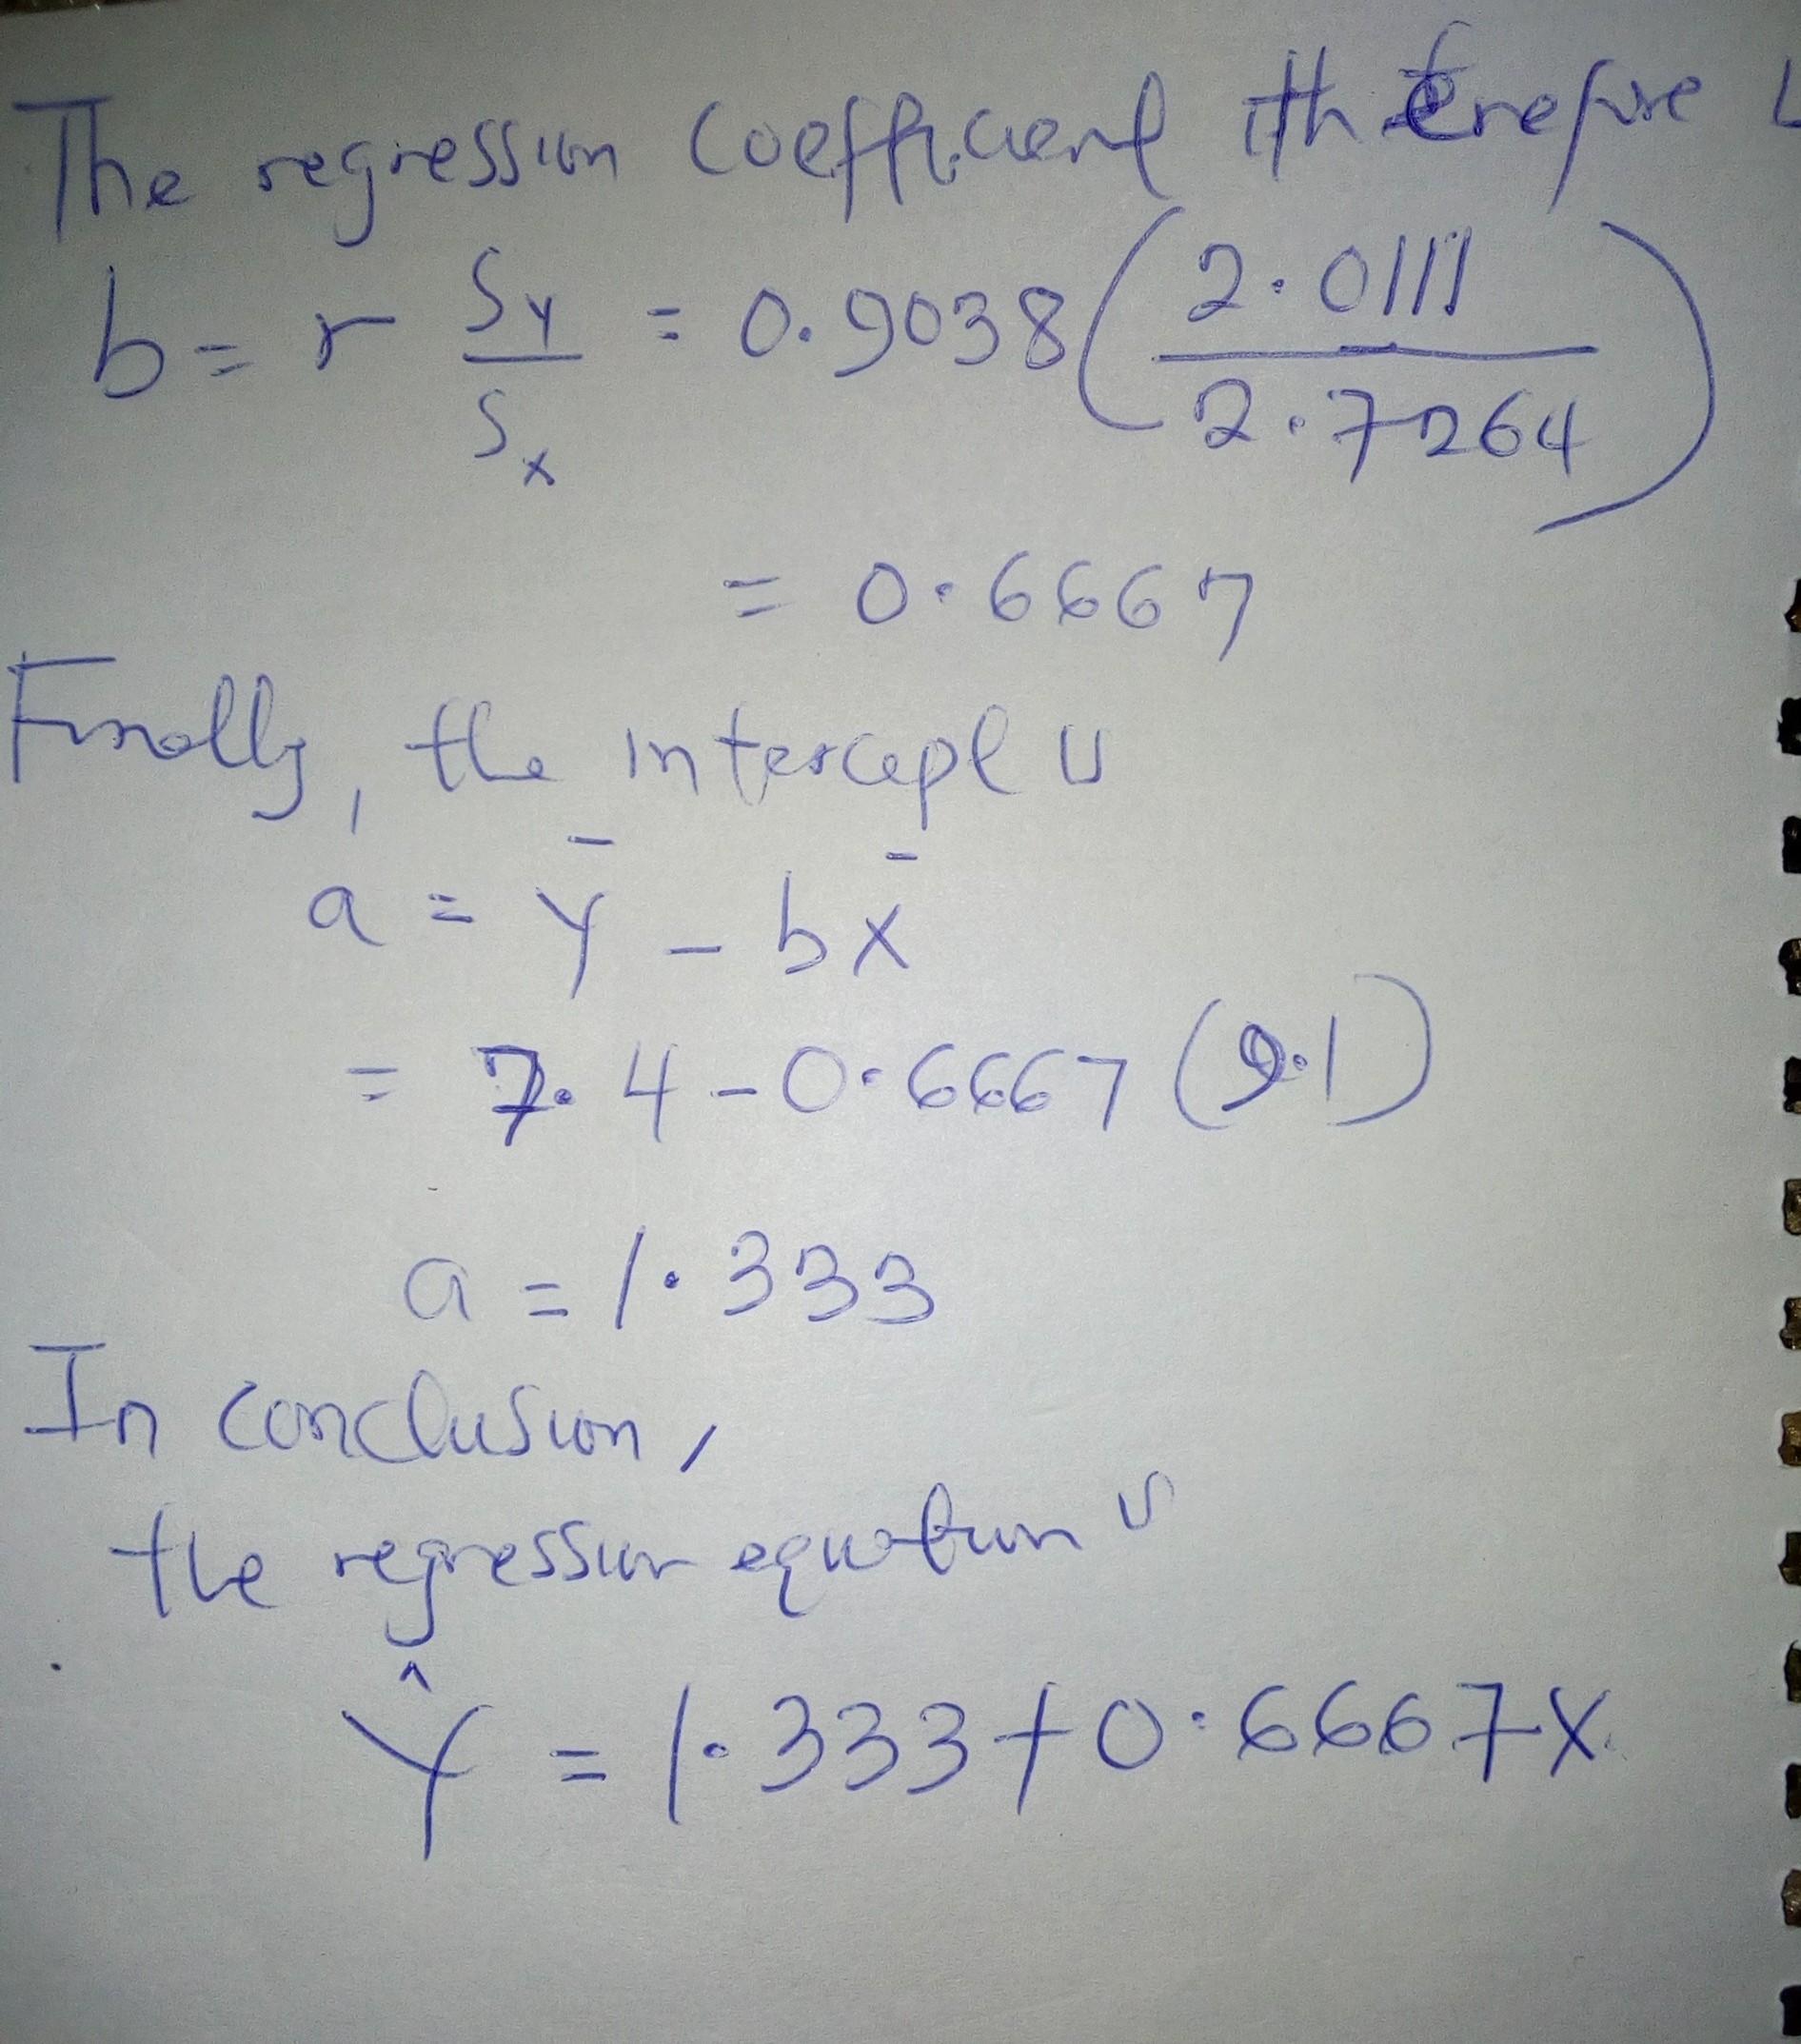 The regression coefficient therefore
b = r Sy/Sx = 0.9038(2.0111/2.7264)
= 0.6667
Finally, the intercept is
a = ȳ - bx̄
= 7.4 - 0.6667(9.1)
a = 1.333
In conclusion,
the regression equation is
Ŷ = 1.333 + 0.6667X